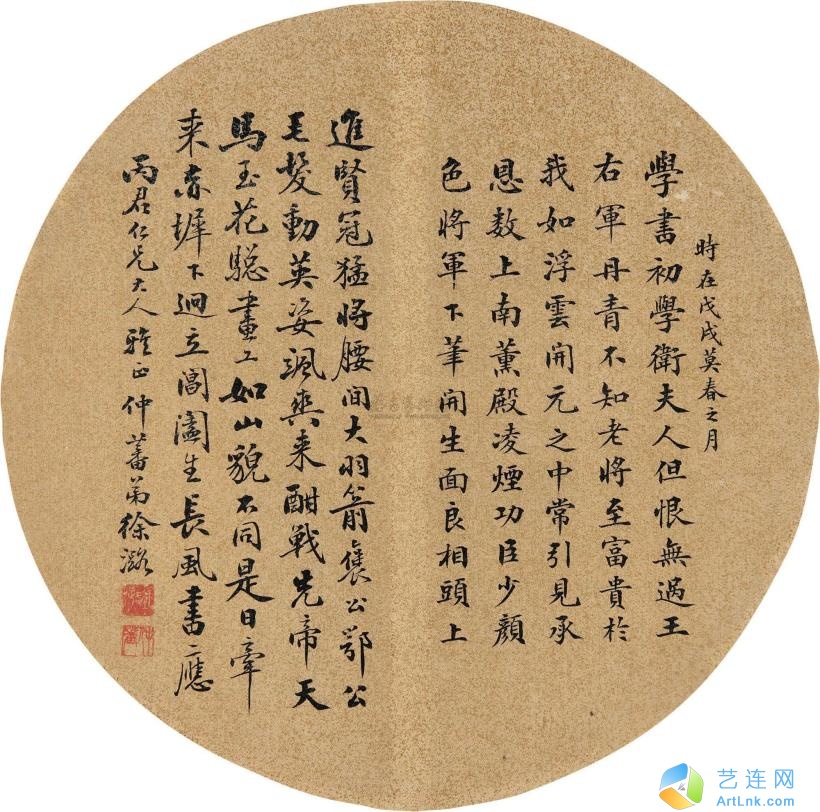 時在戊戌莫春之月
學書初學衛夫人但恨無過王
右軍丹青不知老將至富貴於
我如浮雲開元之中常引見承
恩数上南薰殿凌煙功臣少顏
色將軍下筆開生面良相頭上
進賢冠猛將腰间大羽箭襃公鄂公
毛髮動英姿颯爽来酣戰先帝天
馬玉花驄畫工如山貌不同是日牽
来赤墀下迥立閶闔生長風書應
丙君仁兄大人雅正仲蕃弟徐潞
艺连网
ArtLnk.com